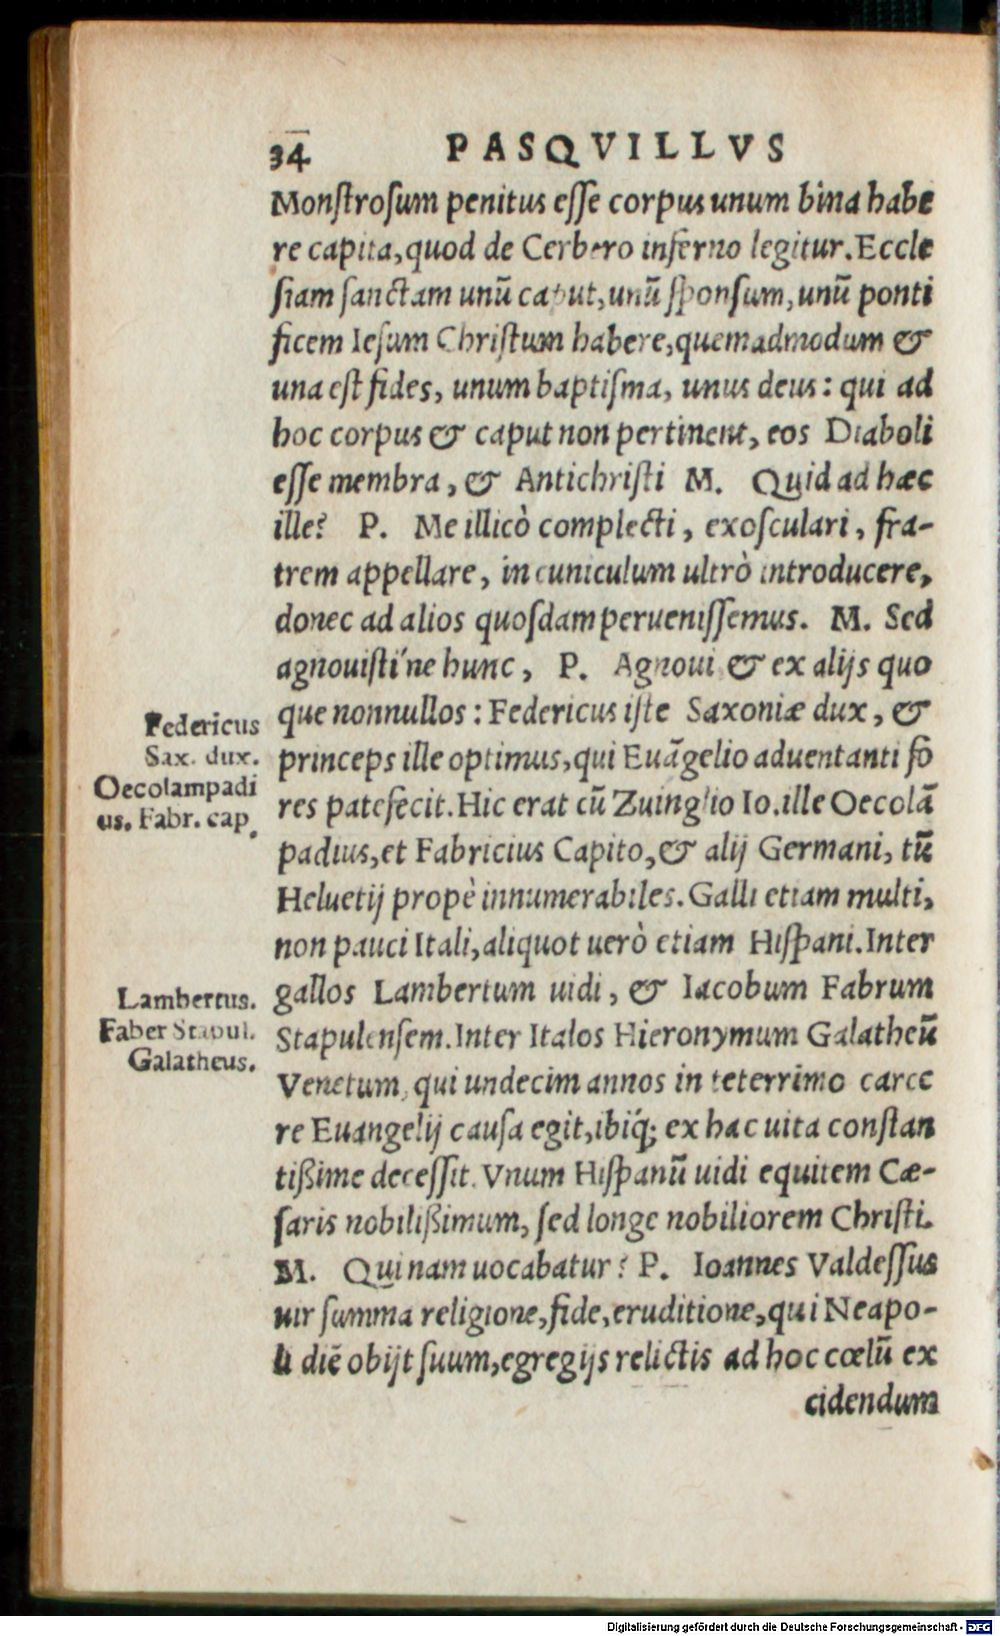 34 PASQVILLVS
Monſtroſum penitus eſſe corpus unum bina habe
re capita, quod de Cerbero inferno legitur. Eccle
ſiam ſanctam unū caput, unū ſponſum, unū ponti
ficem Ieſum Chriſtum habere, quemadmodum &
una eſt fides, unum baptiſma, unus deus: qui ad
hoc corpus & caput non pertinent, eos Diaboli
eſſe membra, & Antichriſti M. Quid ad hæc
ille? P. Me illicò complecti, exoſculari, fra-
trem appellare, in cuniculum ultrò introducere,
donec ad alios quoſdam perueniſſemus. M. Sed
agnouiſti´ne hunc, P. Agnoui & ex alijs quo
que nonnullos: Federicus iſte Saxoniæ dux, &
Federicus
Sax. dux.
princeps ille optimus, qui Euāgelio aduentanti fo
Oecolampadi
us. Fabr. cap.
res patefecit. Hic erat cū Zuinglio Io. ille Oecolā
padius, et Fabricius Capito, & alij Germani, tū
Heluetij propè innumerabiles. Galli etiam multi,
non pauci Itali, aliquot uerò etiam Hiſpani. Inter
Lambertus.
gallos Lambertum uidi, & Iacobum Fabrum
Faber Stapul.
Stapulenſem. Inter Italos Hieronymum Galatheū
Galatheus.
Venetum, qui undecim annos in teterrimo carce
re Euangelij cauſa egit, ibiq́; ex hac uita conſtan
tißime deceſſit. Vnum Hiſpanū uidi equitem Cæ-
ſaris nobilißimum, ſed longe nobiliorem Chriſti.
M. Quinam uocabatur? P. Ioannes Valdeſſus
uir ſumma religione, fide, eruditione, qui Neapo-
li diē obijt ſuum, egregijs relictis ad hoc cœlū ex
cidendum
Digitalisierung gefördert durch die Deutsche Forschungsgemeinschaft - DFG